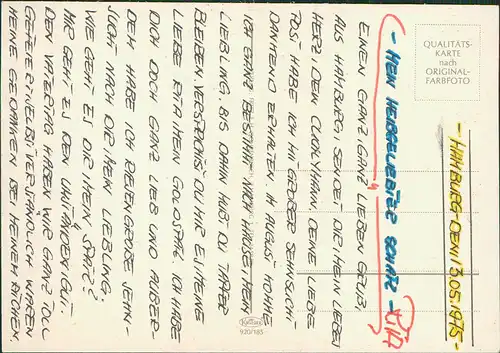 - HAMBURG - DEN 11/13.05.1975 -
- MEIN HEIßGELIEBTER SCHATZ -
EINEN GANZ, GANZ LIEBEN GRUß,
AUS HAMBURG, SENDET DIR MEIN LIEBES
HERZ, DEIN DEINE LIEBE
POST HABE ICH MIT GROßER SEHNSUCHT
DANKEND ERHALTEN. IM AUGUST KOMME
ICH GANZ BESTIMMT NACH HAUSE, MEIN
LIEBLING. BIS DAHIN MUßT DU TAPFER
BLEIBEN VERSPRICHST DU MIR ES! MEINE
LIEBE RITA MEIN GOLDSPATZ ICH HABE
DICH DOCH GANZ LIEB UND AUßER-
DEM HABE ICH RIESENGROßE SEHN-
SUCHT NACH DIR MEIN LIEBLING.
WIE GEHT ES DIR MEIN SPATZ?
MIR GEHT ES DEN UMSTÄNDEN GUT.
DEN VATERTAG HABEN WIR GANZ TOLL
GEFEIERT. SELBSTVERSTÄNDLICH WAREN
MEINE GEDANKEN BEI MEINEM
QUALITÄTS-
KARTE
nach
ORIGINAL-
FARBFOTO
920/185